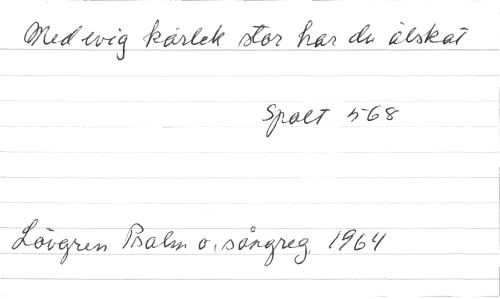 Med evig kärlek stor har du älskat
Spalt 568
Lövgren Psalm o. sångreg. 1964